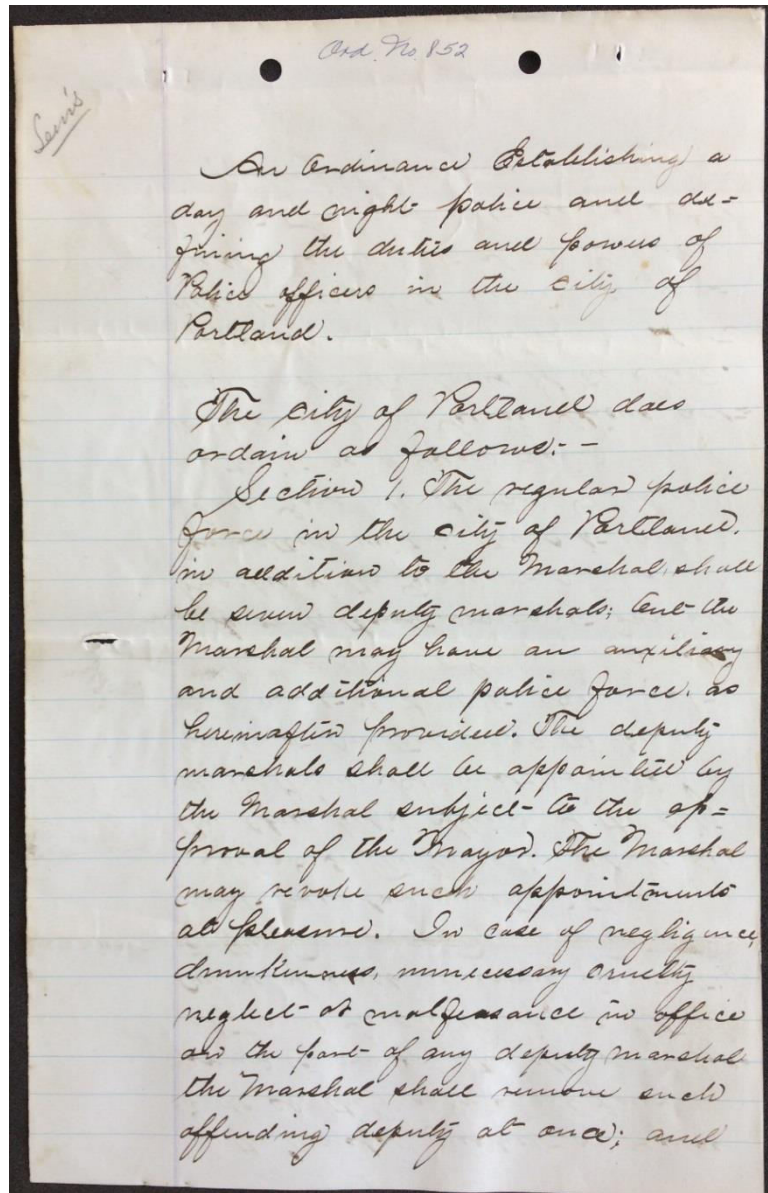 Ord. No. 852
An Ordinance Establishing a
day and night police and de=
fining the duties and powers of
Police officers in the city of
Portland.
The city of Portland does
ordain as follows:-
Section 1. The regular police
force in the city of Portland,
in addition to the Marshal, shall
be seven deputy marshals; but the
Marshal may have an auxiliary
and additional police force, as
hereinafter provided. The deputy
marshals shall be appointed by
the Marshal subject to the ap=
proval of the Mayor. The Marshal
may revoke such appointments
at pleasure. In case of negligence,
drunkenness, unnecessary cruelty
neglect or malfeasance in office
on the part of any deputy marshal
the Marshal shall remove such
offending deputy at once; and